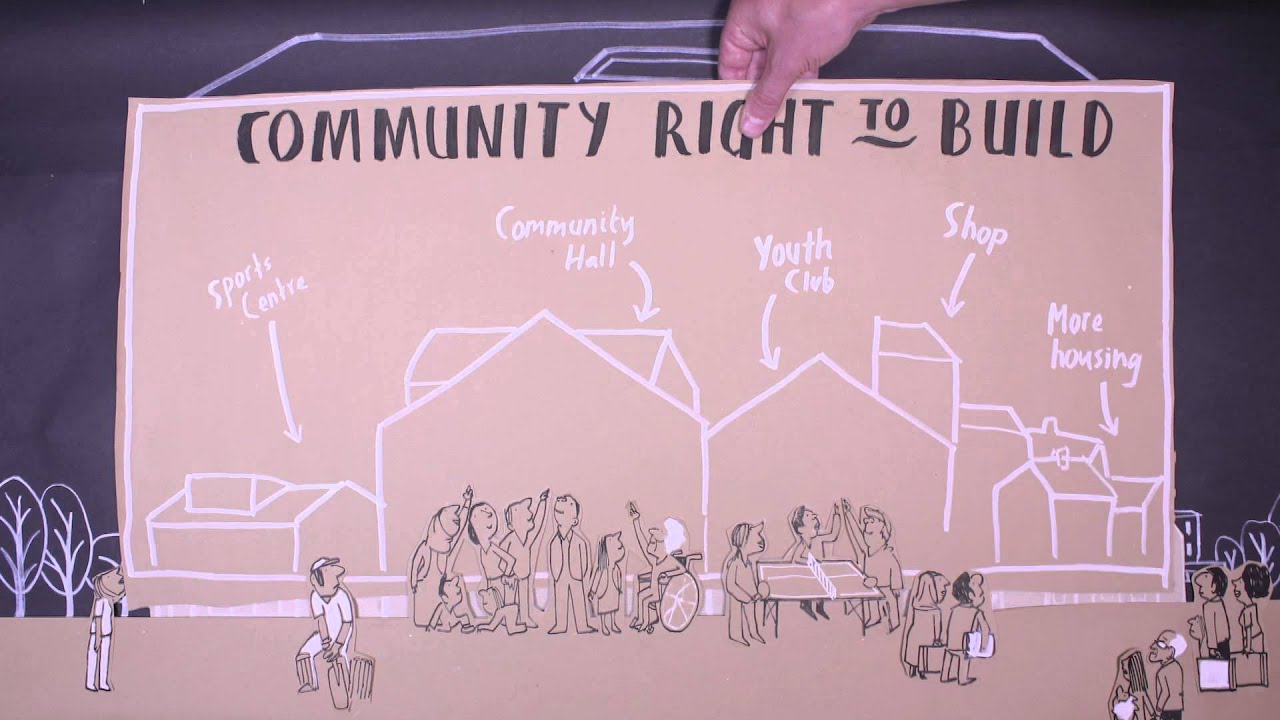 COMMUNITY RIGHT TO BUILD
Sports
Centre
Community
Hall
Youth
Club
Shop
More
housing